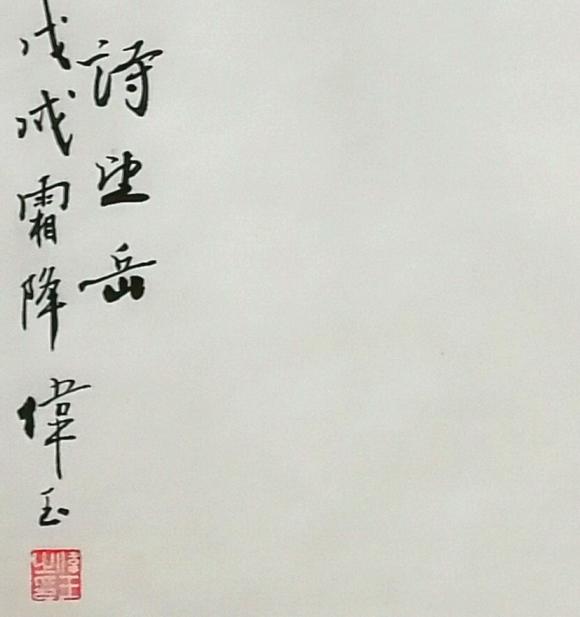 詩望岳
戊戌霜降偉玉